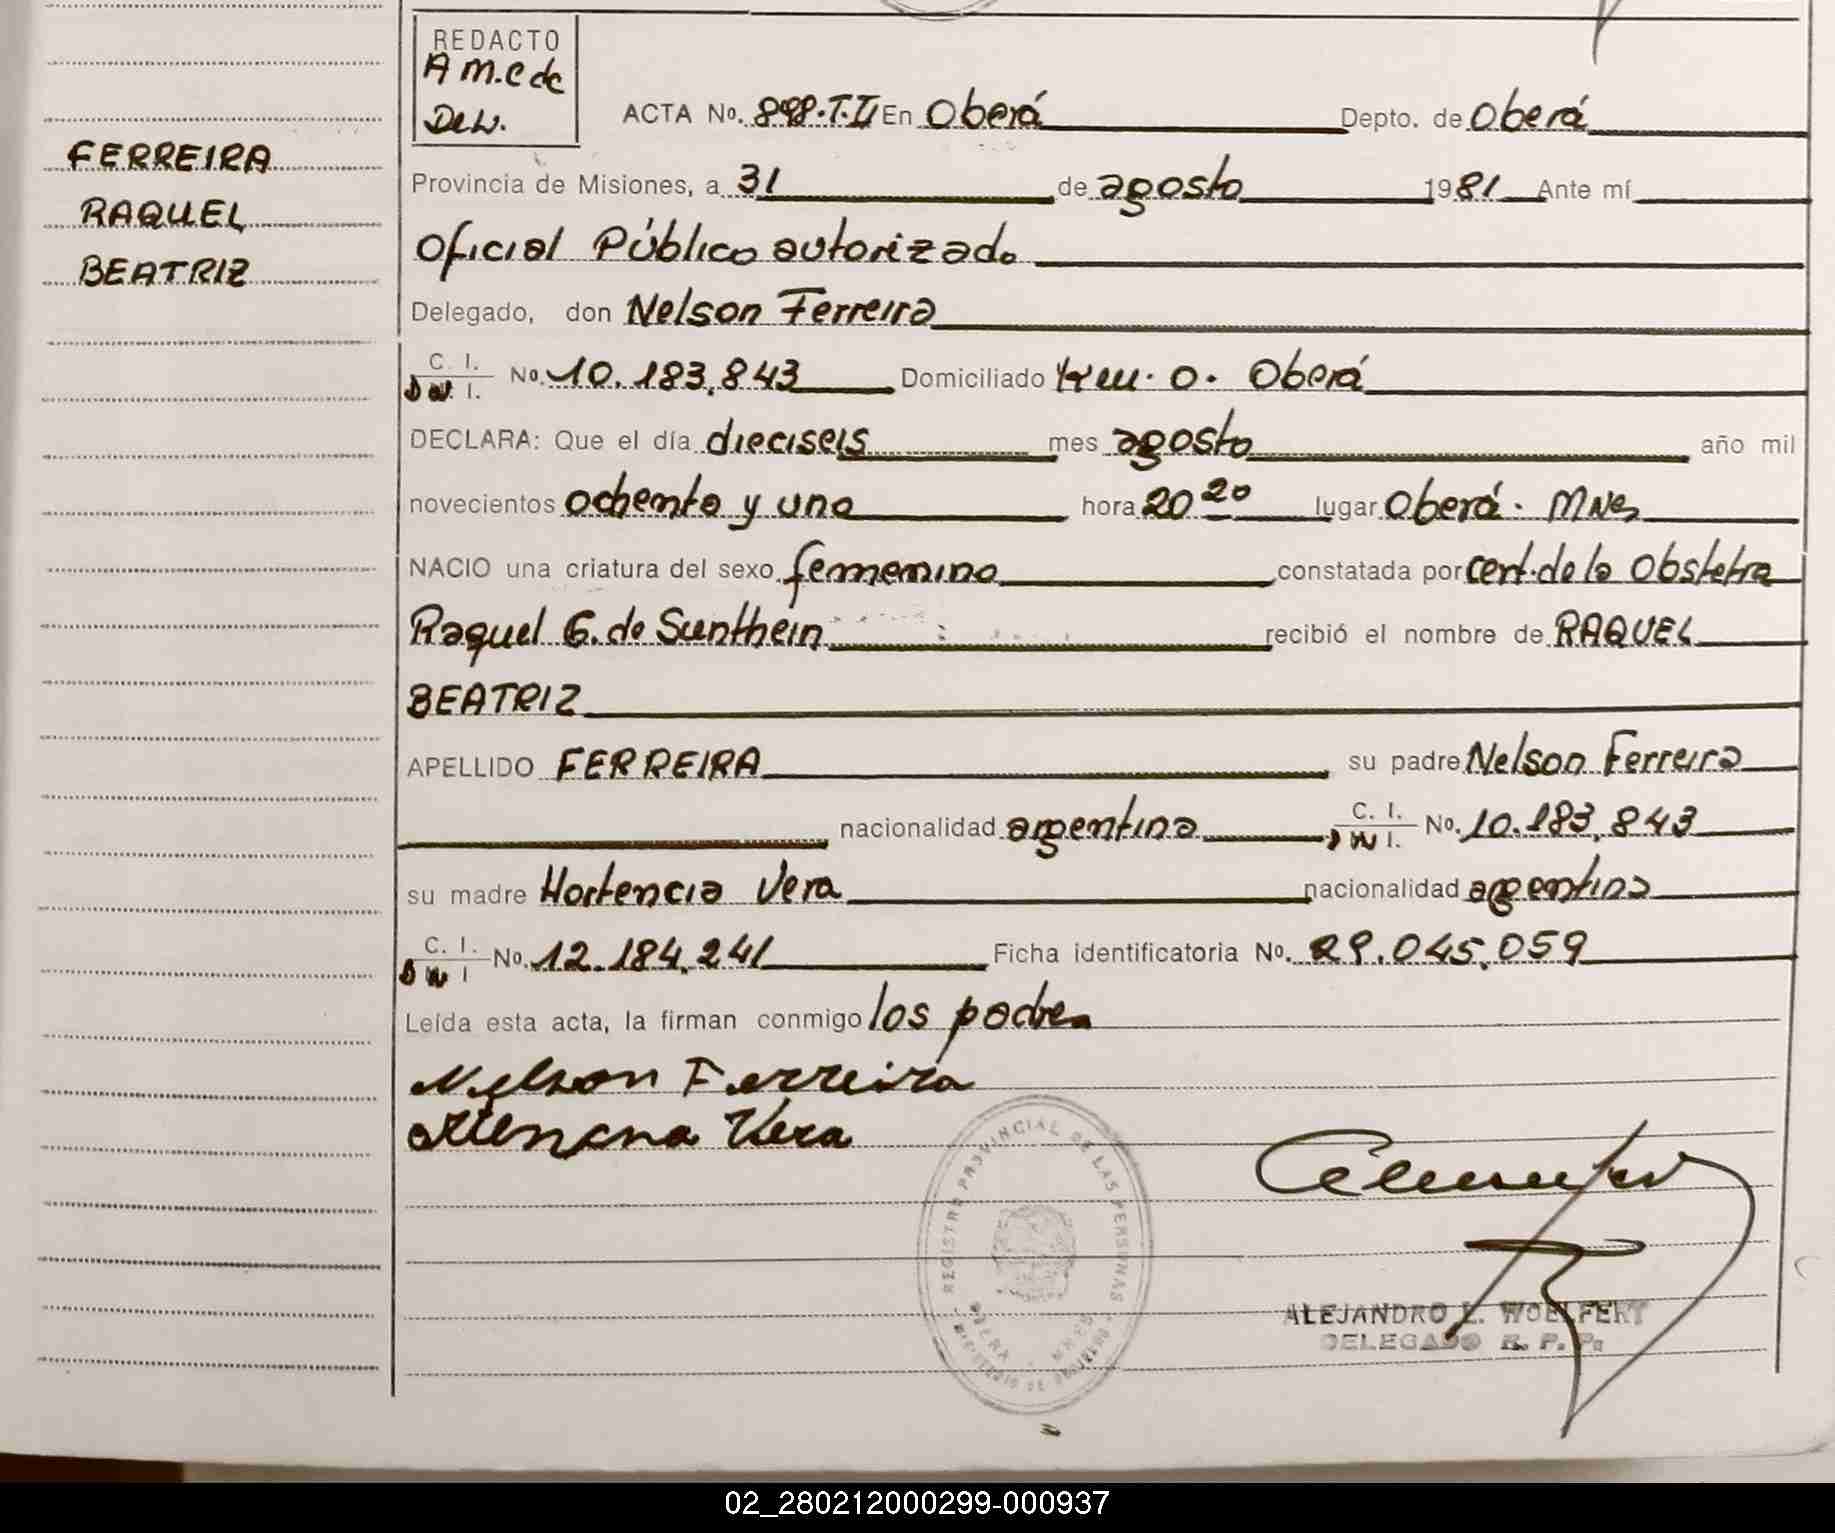 REDACTO
A M.C de
De W.
ACTA No. 898.T.II En Oberá Depto. de Oberá
FERREIRA
RAQUEL
BEATRIZ
Provincia de Misiones, a 31 de agosto 1981 Ante mí
Oficial Público autorizado
Delegado, don Nelson Ferreira
C. I.
D N. I. No. 10.183.843 Domiciliado Km. 0. Oberá
DECLARA: Que el día dieciseis mes agosto año mil
novecientos ochenta y uno hora 20 20 lugar Oberá. Mnes
NACIO una criatura del sexo femenino constatada por cert. de la Obstetra
Raquel G. de Sunthein recibió el nombre de RAQUEL
BEATRIZ
APELLIDO FERREIRA su padre Nelson Ferreira
nacionalidad argentina C. I.
D N I. No. 10.183.843
su madre Hortencia Vera nacionalidad argentina
C. I.
D N I No. 12.184.241 Ficha identificatoria No. 29.045.059
Leída esta acta, la firman conmigo los padres
Nelson Ferreira
Vera
REGISTRO PROVINCIAL DE LAS PERSONAS
OBERA - MNES
MINISTERIO DE GOBIERNO
ALEJANDRO L. WOELFERT
DELEGADO R. P. P.
02_280212000299-000937